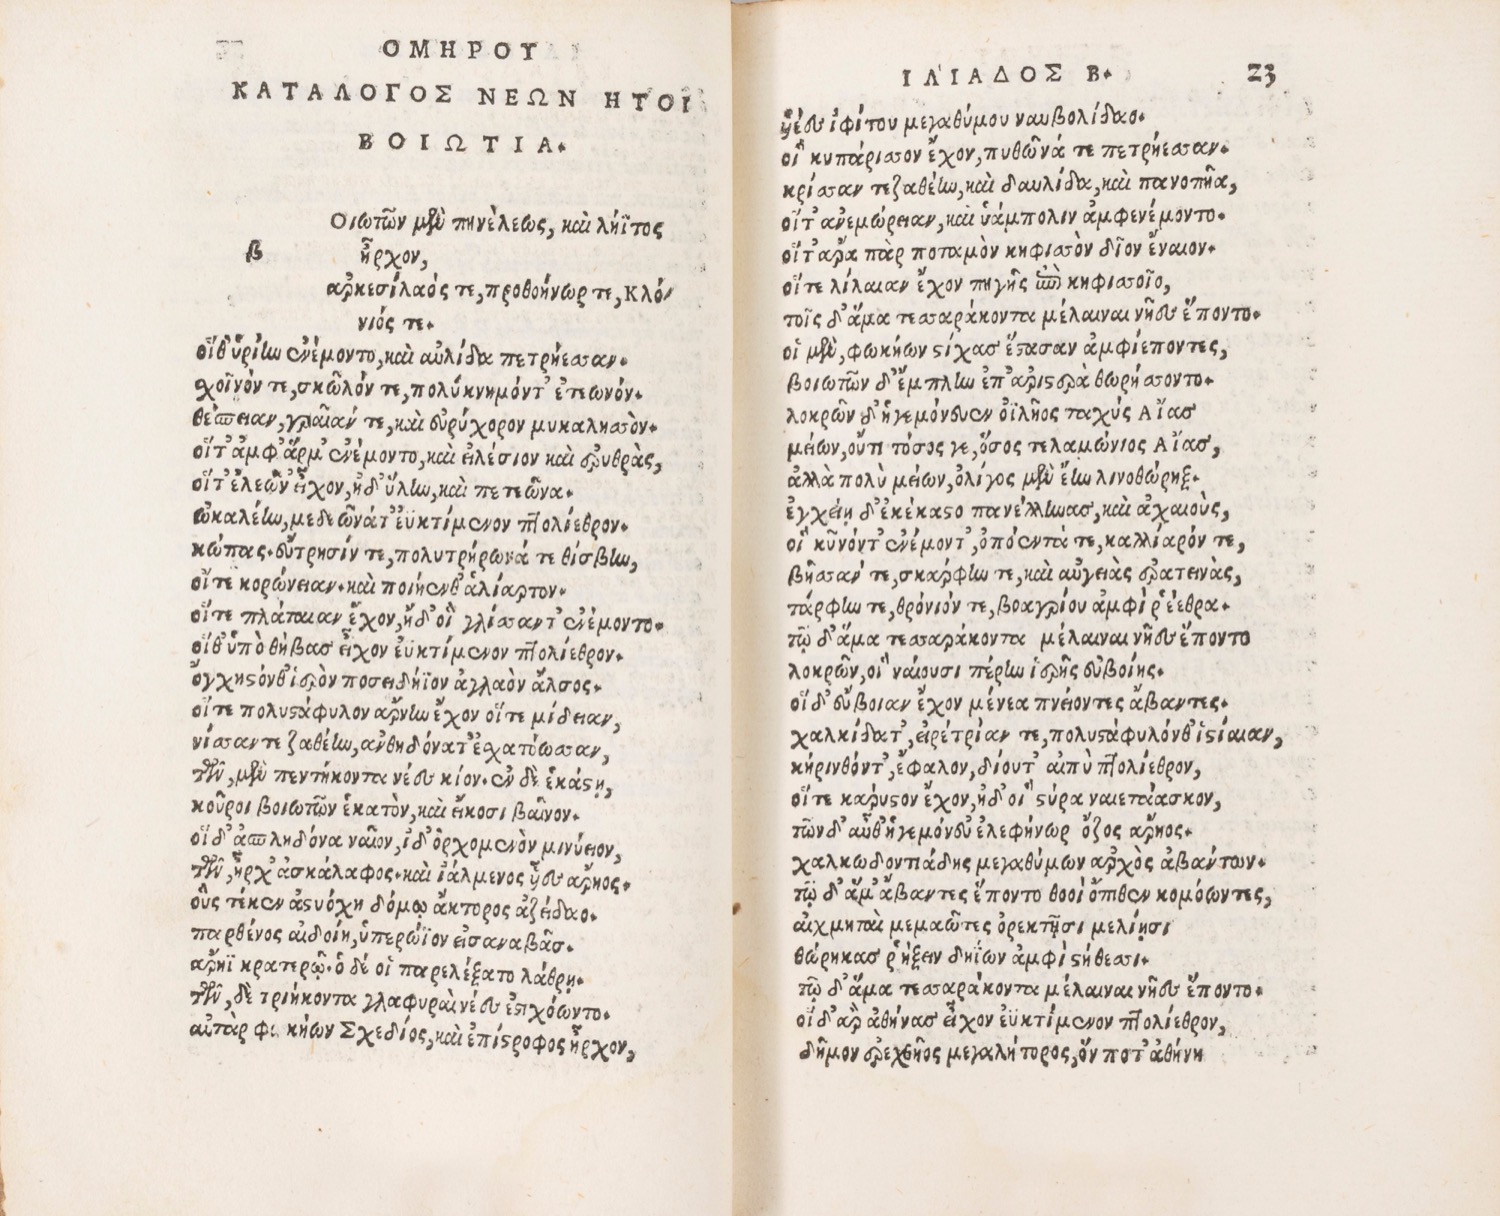 ΟΜΗΡΟΥ
ΚΑΤΑΛΟΓΟΣ ΝΕΩΝ ΗΤΟΙ
ΒΟΙΩΤΙΑ.
Οιωτῶν μὲν πηνέλεως, καὶ λήϊτος
β ἦρχον,
ἀρκεσίλαός τε, προθοήνωρ τε, Κλό-
νιός τε.
οἵθ' ὑρίην ἐνέμοντο, καὶ αὐλίδα πετρήεσσαν.
χοῖνόν τε, σκῶλόν τε, πολύκνημόντ' ἐτεωνόν.
θέσπειαν, γραῖάν τε, καὶ εὐρύχορον μυκαλησσὸν.
οἵτ' ἀμφ' ἅρμ' ἐνέμοντο, καὶ εἰλέσιον καὶ ἐρυθρὰς,
οἵτ' ἐλεῶν' εἶχον, ἠδ' ὕλην, καὶ πετεῶνα.
ὠκαλέην, μεδεῶνάτ' ἐϋκτίμενον πτολίεθρον.
κώπας. εὔτρησίν τε, πολυτρήρωνά τε θίσβην,
οἵτε κορώνειαν. καὶ ποιήενθ' ἁλίαρτον.
οἵτε πλάταιαν ἔχον, ἠδ' οἳ γλίσσαντ' ἐνέμοντο.
οἵθ' ὑπὸ θήβας εἶχον ἐϋκτίμενον πτολίεθρον.
ὄγχηστόνθ' ἱερὸν ποσειδήϊον ἀγλαὸν ἄλσος.
οἵτε πολυστάφυλον ἄρνην ἔχον οἵτε μίδειαν,
νίσσαν τε ζαθέην, ἀνθηδόνατ' ἐσχατόωσσαν,
τῶν, μὲν πεντήκοντα νέες κίον. ἐν δὲ ἑκάστῃ,
κοῦροι βοιωτῶν ἑκατὸν, καὶ εἴκοσι βαῖνον.
οἵδ' ἀσπληδόνα ναῖον, ἰδ' ὀρχομενὸν μινύειον,
τῶν, ἦρχ' ἀσκάλαφος. καὶ ἰάλμενος ὗες ἄρηος.
οὓς τέκεν ἀστυόχη δόμῳ ἄκτορος ἀζείδαο.
παρθένος αἰδοίη, ὑπερώϊον εἰσαναβᾶσ.
ἄρηϊ κρατερῷ. ὁ δέ οἱ παρελέξατο λάθρῃ.
τῶν, δὲ τριήκοντα γλαφυραὶ νέες ἐστιχόωντο.
αὐτὰρ φωκήων Σχεδίος, καὶ ἐπίστροφος ἦρχον,
ΙΛΙΑΔΟΣ Β. 23
ὗες ἰφίτου μεγαθύμου ναυβολίδαο.
οἳ κυπάρισσον ἔχον, πυθῶνά τε πετρήεσσαν.
κρίσσαν τε ζαθέην, καὶ δαυλίδα, καὶ πανοπῆα,
οἵτ' ἀνεμώρειαν, καὶ ὑάμπολιν ἀμφενέμοντο.
οἵτ' ἄρα πὰρ ποταμὸν κηφισσὸν δῖον ἔναιον.
οἵτε λίλαιαν ἔχον πηγῆς ἐπὶ κηφισσοῖο,
τοῖς δ' ἅμα τεσσαράκοντα μέλαιναι νῆες ἕποντο.
οἱ μὲν, φωκήων στίχας ἵστασαν ἀμφιέποντες,
βοιωτῶν δ' ἔμπλην ἐπ' ἀριστερὰ θωρήσσοντο.
λοκρῶν δ' ἡγεμόνευεν ὀϊλῆος ταχύς Αἴας
μείων, οὔτι τόσος γε, ὅσος τελαμώνιος Αἴας,
ἀλλὰ πολὺ μείων, ὀλίγος μὲν ἔην λινοθώρηξ.
ἐγχείῃ δ' ἐκέκαστο πανέλληνας, καὶ ἀχαιοὺς,
οἳ κῦνόντ' ἐνέμοντ', ὀπόεντά τε, καλλίαρόν τε,
βῆσσάν τε, σκάρφην τε, καὶ αὐγειὰς ἐρατεινὰς,
τάρφην τε, θρόνιόν τε, βοαγρίου ἀμφὶ ῥέεθρα.
τῷ δ' ἅμα τεσσαράκοντα μέλαιναι νῆες ἕποντο
λοκρῶν, οἳ ναίουσι πέρην ἱερῆς εὐβοίης.
οἳ δ' εὔβοιαν ἔχον μένεα πνείοντες ἄβαντες.
χαλκίδατ', εἰρέτριαν τε, πολυστάφυλόνθ' ἱστίαιαν,
κήρινθόντ', ἔφαλον, δίουτ' αἰπὺ πτολίεθρον,
οἵτε κάρυστον ἔχον, ἠδ' οἳ στύρα ναιετάασκον,
τῶν δ' αὖθ' ἡγεμόνευ' ἐλεφήνωρ ὄζος ἄρηος.
χαλκωδοντιάδης μεγαθύμων ἀρχὸς ἀβάντων.
τῷ δ' ἅμ' ἄβαντες ἕποντο θοοὶ ὄπιθεν κομόωντες,
αἰχμηταὶ μεμαῶτες ὀρεκτῇσι μελίῃσι
θώρηκας ῥήξειν δηΐων ἀμφὶ στήθεσσι.
τῷ δ' ἅμα τεσσαράκοντα μέλαιναι νῆες ἕποντο.
οἵ δ' ἄρ' ἀθήνας εἶχον ἐϋκτίμενον πτολίεθρον,
δῆμον ἐρεχθῆος μεγαλήτορος, ὅν ποτ' ἀθήνη